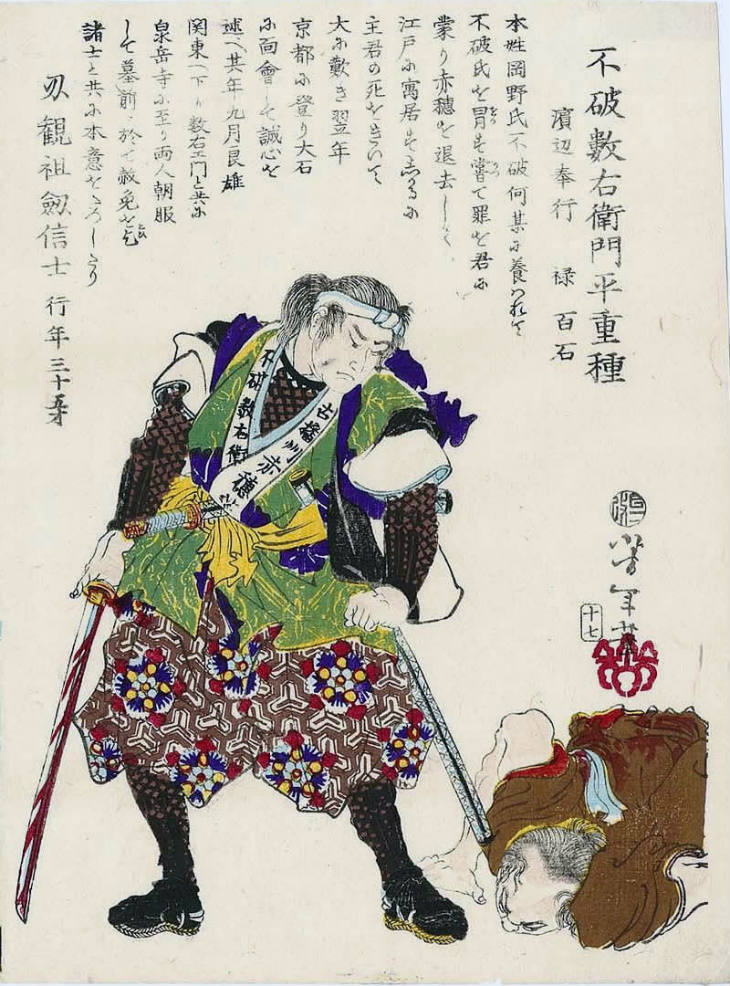 不破數右衛門平重種
濱辺奉行 禄百石
本姓岡野氏不破何某に養はれて
不破氏を冒す嘗て罪を君に
蒙り赤穂を退去して
江戸に寓居す
主君の死をきいて
大に歎き翌年
京都に登り大石
に面會して誠心を
述べ其年九月良雄
関東へ下り数右エ門と共に
泉岳寺に至り両人朝服
して墓前に於て赦免を
諸士と共に本意を
刃観祖劔信士 行年三十五才
不破數右衛
古播州赤穂
芳年
十七